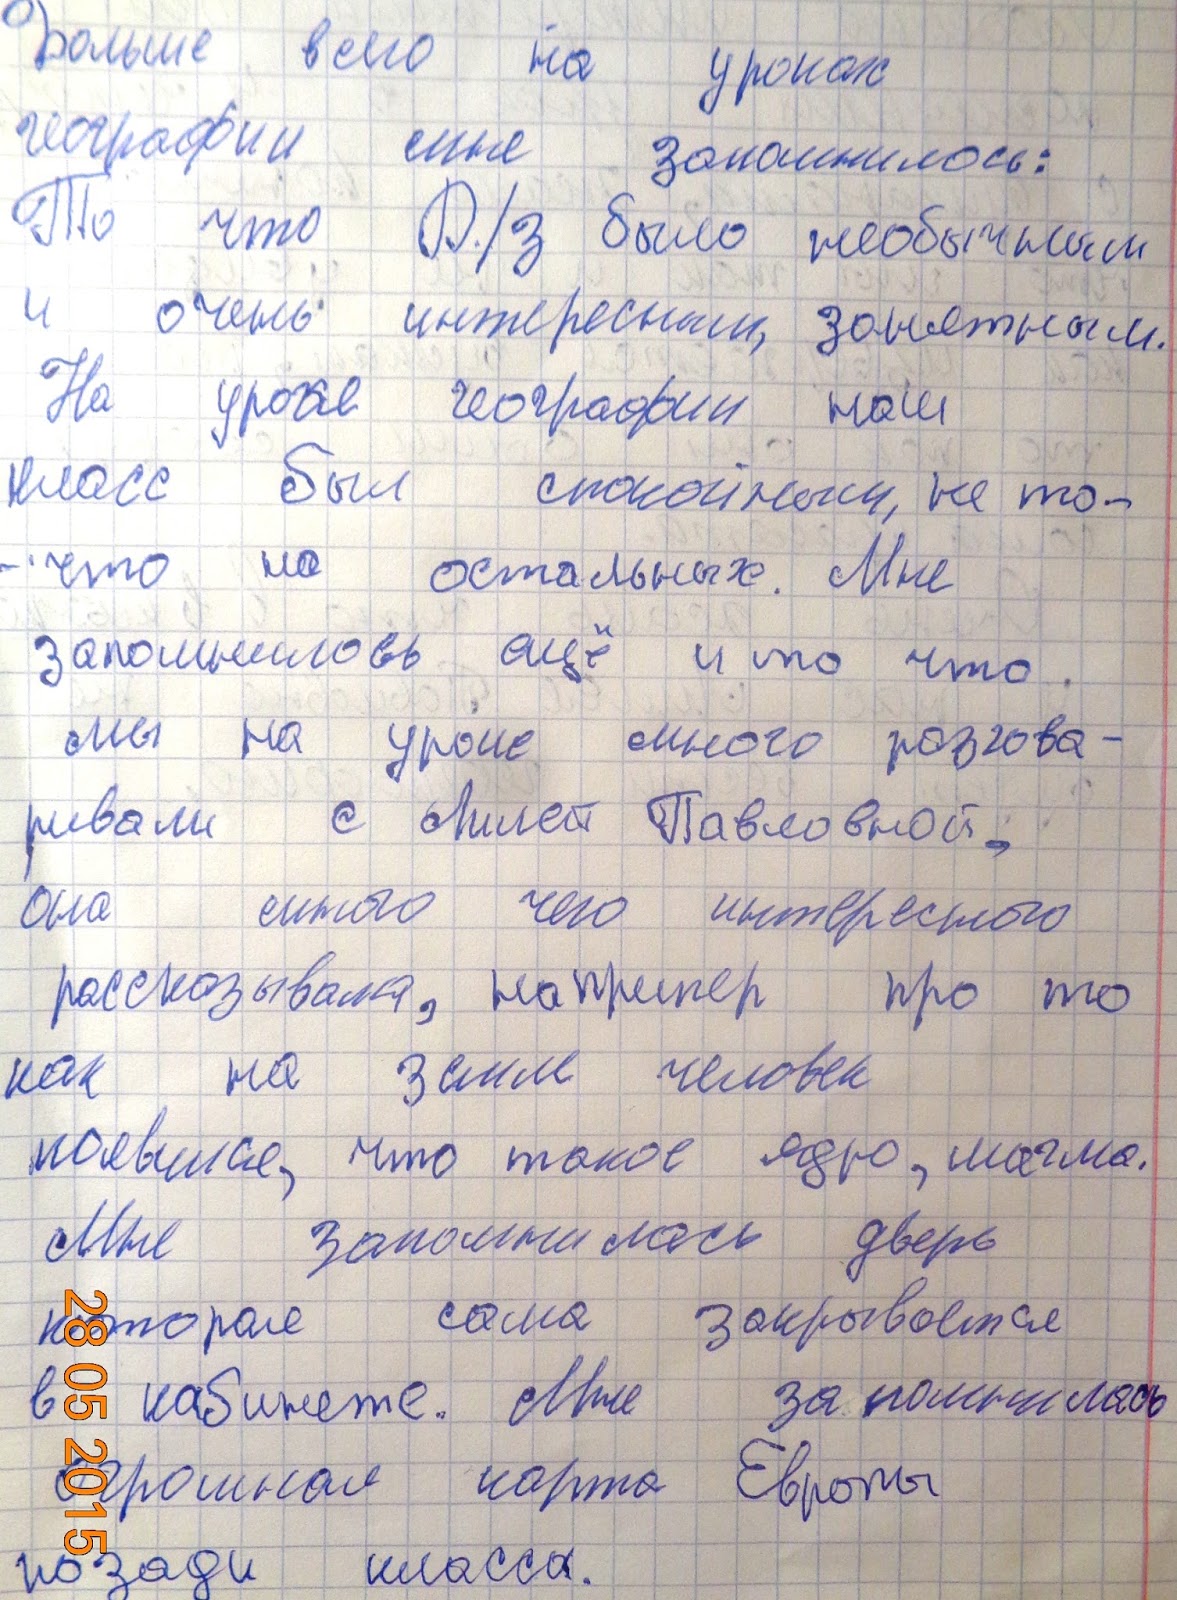 Больше всего на уроках
географии мне запомнилось:
То что Д./З было необычным
и очень интересным, занятным.
На уроке географии наш
класс был спокойным, не то-
-что на остальных. Мне
запомнилось ещё и то что
мы на уроке много разгова-
ривали с Лилей Павловной,
она много чего интересного
рассказывала, например про то
как на земле человек
появился, что такое ядро, магма.
Мне запомнилась дверь
которая сама закрывается
в кабинете. Мне запомнилась
огромная карта Европы
позади класса.
28 05 2015